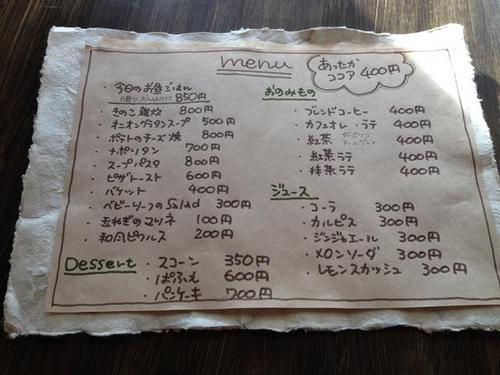 menu
あったか
ココア 400円
・今日のお昼ごはん
850円
・きのこ雑炊 800円
・オニオングラタンスープ 500円
・ポテトのチーズ焼 800円
・ナポリタン 700円
・スープパスタ 800円
・ピザトースト 600円
・バケット 400円
・ベビーリーフのSalad 300円
・玉ねぎのマリネ 100円
・和風ピクルス 200円
Dessert
・スコーン 350円
・ぱふぇ 600円
・パンケーキ 700円
おのみもの
・ブレンドコーヒー 400円
・カフェオレ・ラテ 400円
・紅茶 ダージリン アールグレイ 400円
・紅茶ラテ 400円
・抹茶ラテ 400円
ジュース
・コーラ 300円
・カルピス 300円
・ジンジャエール 300円
・メロンソーダ 300円
・レモンスカッシュ 300円